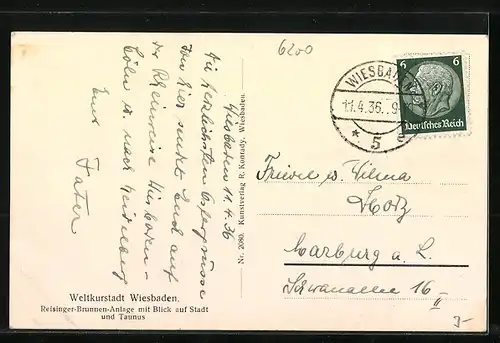 6200
Wiesbaden 11.4.36
Die herzlichsten Ostergrüsse
von hier sendet Euch auf
der Rheinreise
Köln u. nach Heidelberg
Euer Vater
Nr. 2080. Kunstverlag R. Konrady, Wiesbaden.
WIESBADEN
11.4.36. 9
* 5 c
6 6
Deutsches Reich
Frieda u. Wilma
Marburg a. L.
Schwanallee 16 II
Weltkurstadt Wiesbaden.
Reisinger-Brunnen-Anlage mit Blick auf Stadt
und Taunus